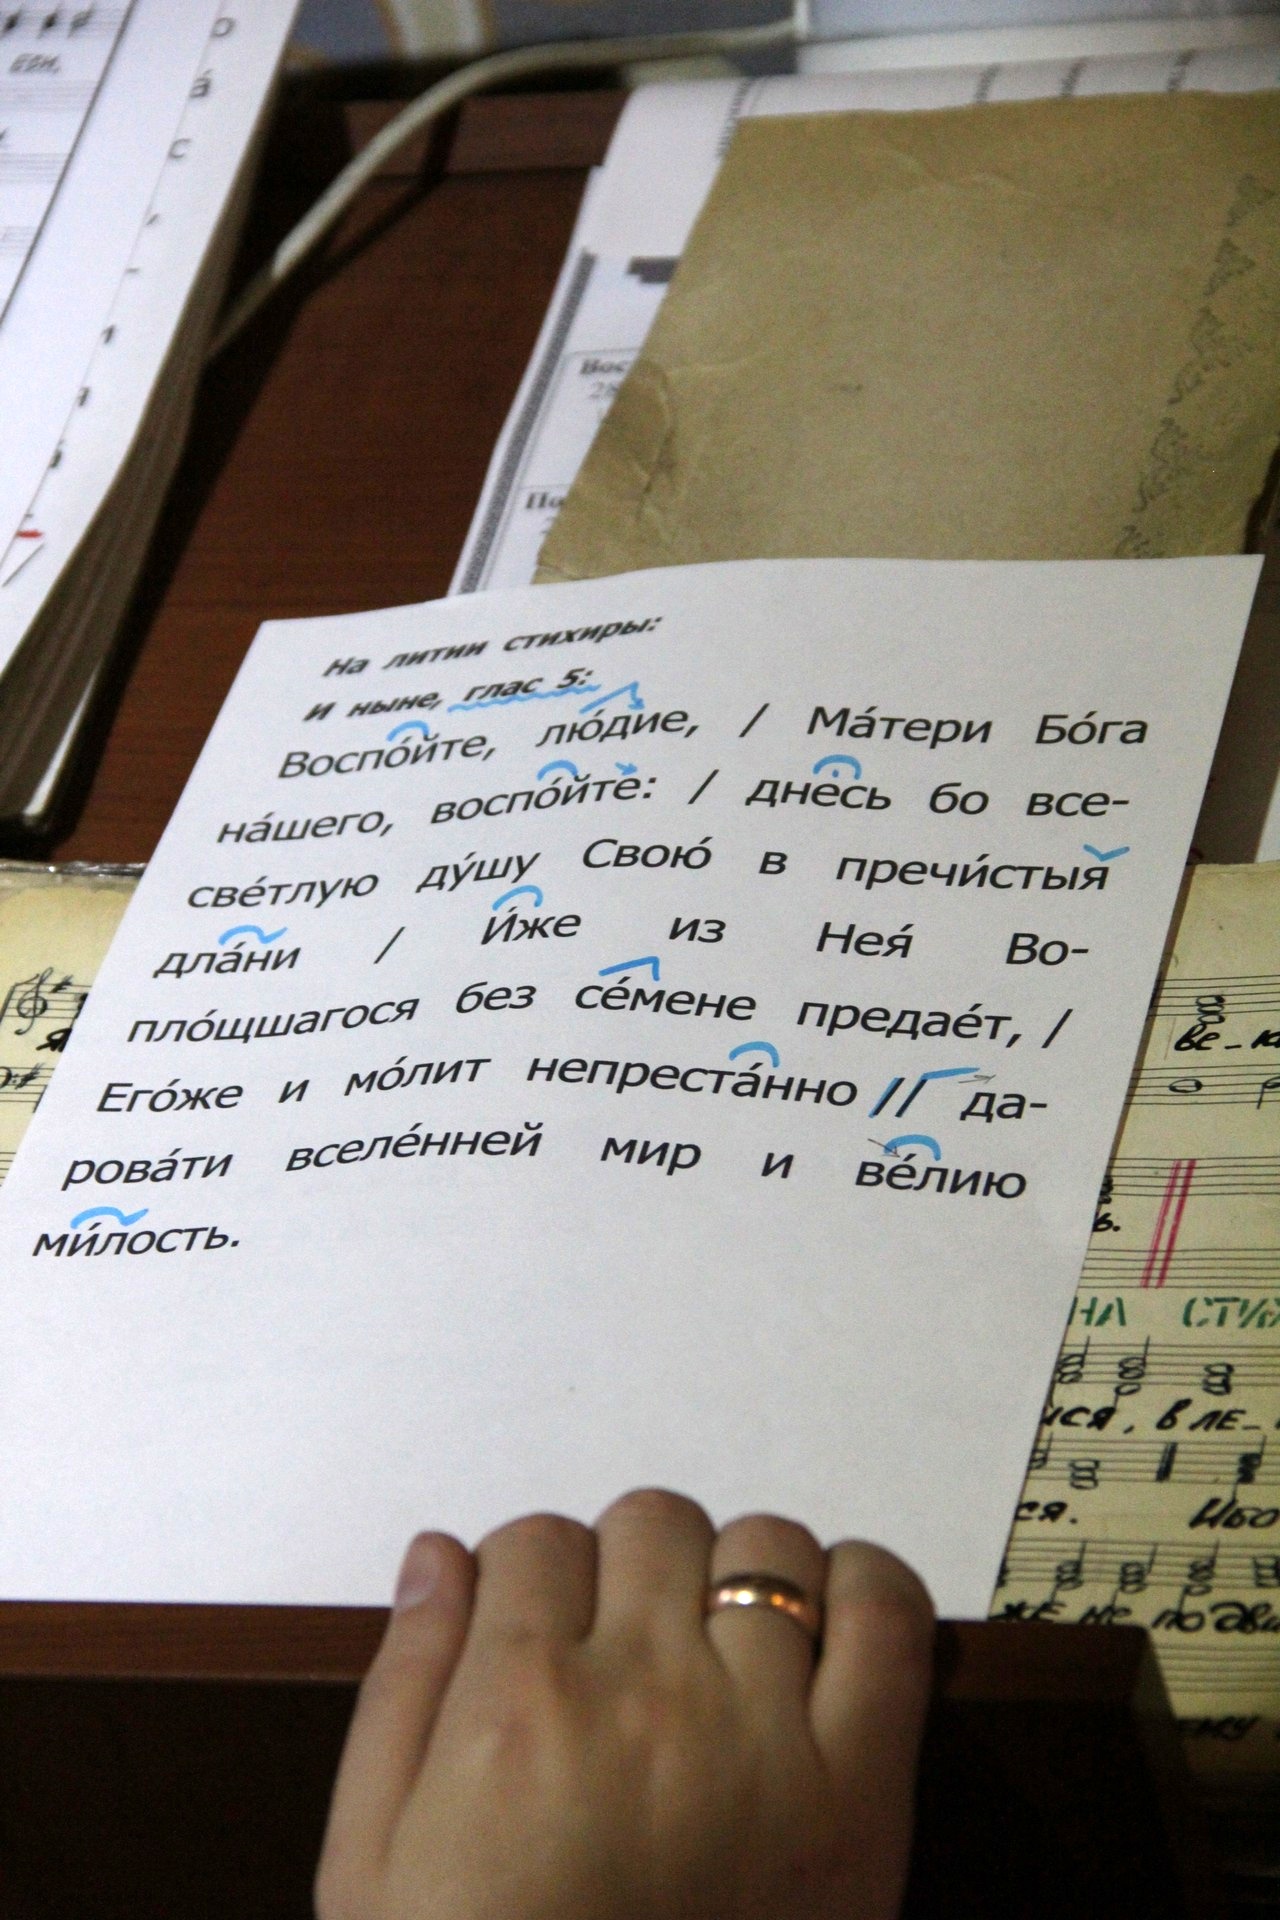 ЕСИ.
Вос
На литии стихиры:
И ныне, глас 5:
Воспо́йте, лю́дие, / Ма́тери Бо́га
на́шего, воспо́йте: / дне́сь бо все-
све́тлую ду́шу Свою́ в пречи́стыя
дла́ни / И́же из Нея́ Во-
пло́щшагося без се́мене предае́т, /
Его́же и мо́лит непреста́нно // да-
рова́ти вселе́нней мир и ве́лию
ми́лость.
ве-
НА СТИХ
ися, в ле-
ся. Ибо
же не подви